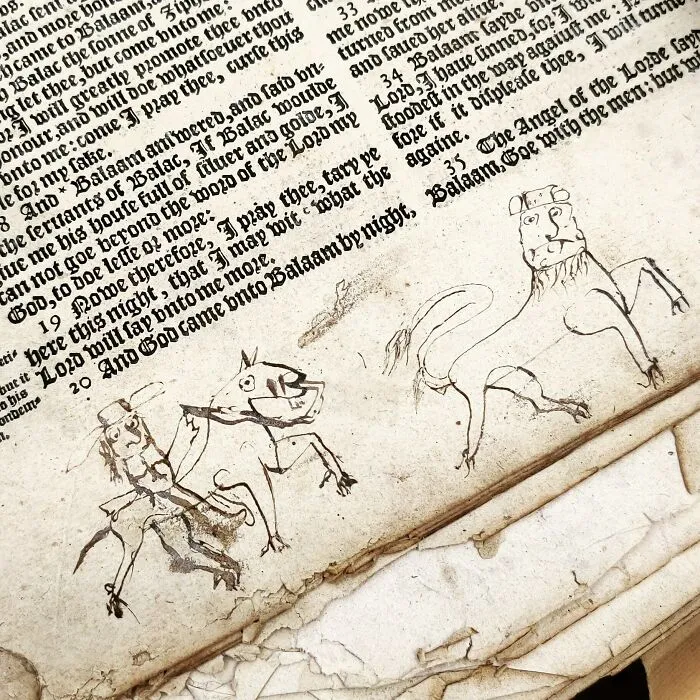 and more honou
h came to Balaam, and
Balac the sonne of Zipp
ng let thee, but come vnto me:
or I will greatly promote thee vnto
onour, and will doe whatsoeuer thou
vnto me: come I pray thee, curse this
le for my sake.
8 And * Balaam answered, and said vn-
the seruants of Balac, If Balac woulde
iue me his house full of siluer and golde, I
can not goe beyond the word of the Lord my
God, to doe lesse or more:
19 Nowe therefore, I pray thee, tary ye
here this night, that I may wit c what the
Lord will say vnto me more.
20 And God came vnto Balaam by night,
but it
his
n,
33
me nowe th
turned from me
and saued her aliue.
34 Balaam sayde vn
Lord, I haue sinned, for I w
stoodest in the way against me:
fore if it displease thee, I will turne
againe.
35 The Angel of the Lorde said
Balaam, Goe with the men: but w